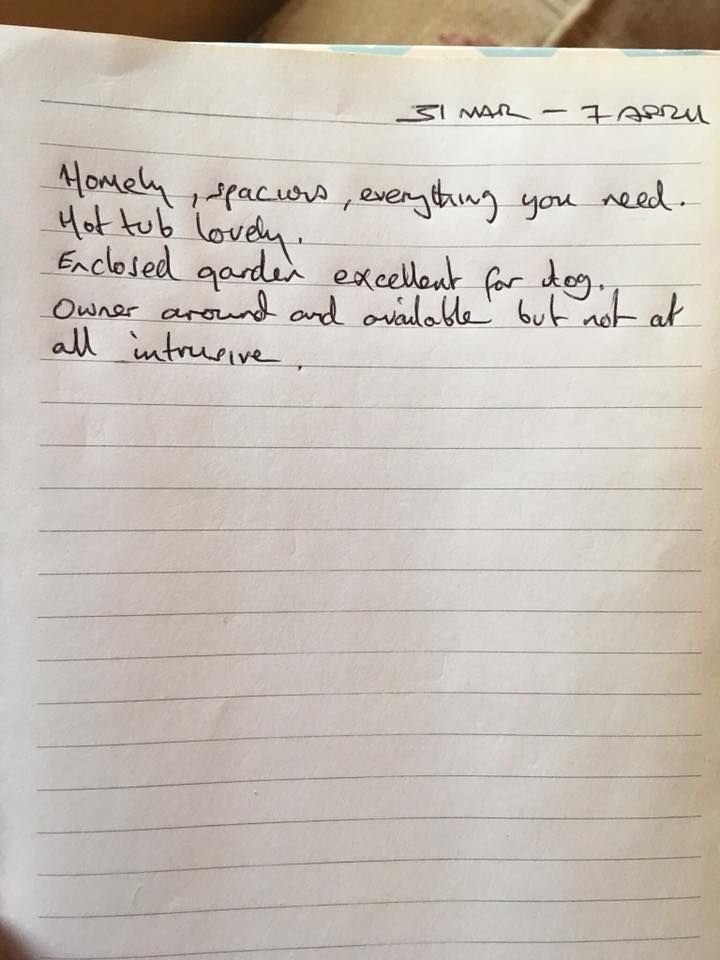 31 MAR - 7 APRIL
Homely, spacious, everything you need.
Hot tub lovely.
Enclosed garden excellent for dog.
Owner around and available but not at
all intrusive.